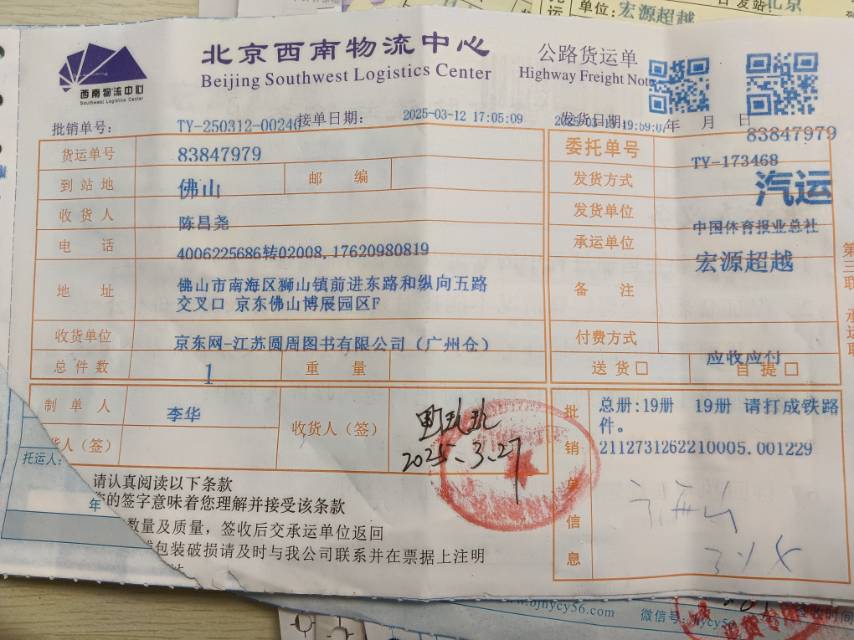 单位:宏源超越
北京
西南物流中心
Southwest Logistics Center
北京西南物流中心
Beijing Southwest Logistics Center
公路货运单
Highway Freight Note
批销单号: TY-250312-00240 接单日期: 2025-03-12 17:05:09 发货日期: 年 月 日
83847979
货运单号 83847979 委托单号 TY-173468
到站地 佛山 邮编 发货方式 汽运
收货人 陈昌尧 发货单位 中国体育报业总社
电话 4006225686转02008,17620980819 承运单位 宏源超越
地址 佛山市南海区狮山镇前进东路和纵向五路
交叉口 京东佛山博展园区F
备注
收货单位 京东网-江苏圆周图书有限公司(广州仓) 付费方式 应收应付
总件数 1 重量 送货□ 自提□
制单人 李华 收货人(签)
2025.3.27
批销单信息
总册:19册 19册 请打成铁路
件。
2112731262210005.001229
货人(签)
托运人:
请认真阅读以下条款
您的签字意味着您理解并接受该条款
年
数量及质量,签收后交承运单位返回
包装破损请及时与我公司联系并在票据上注明
第三联
.bjhycy56.com 微信号:hycy56
签收时间